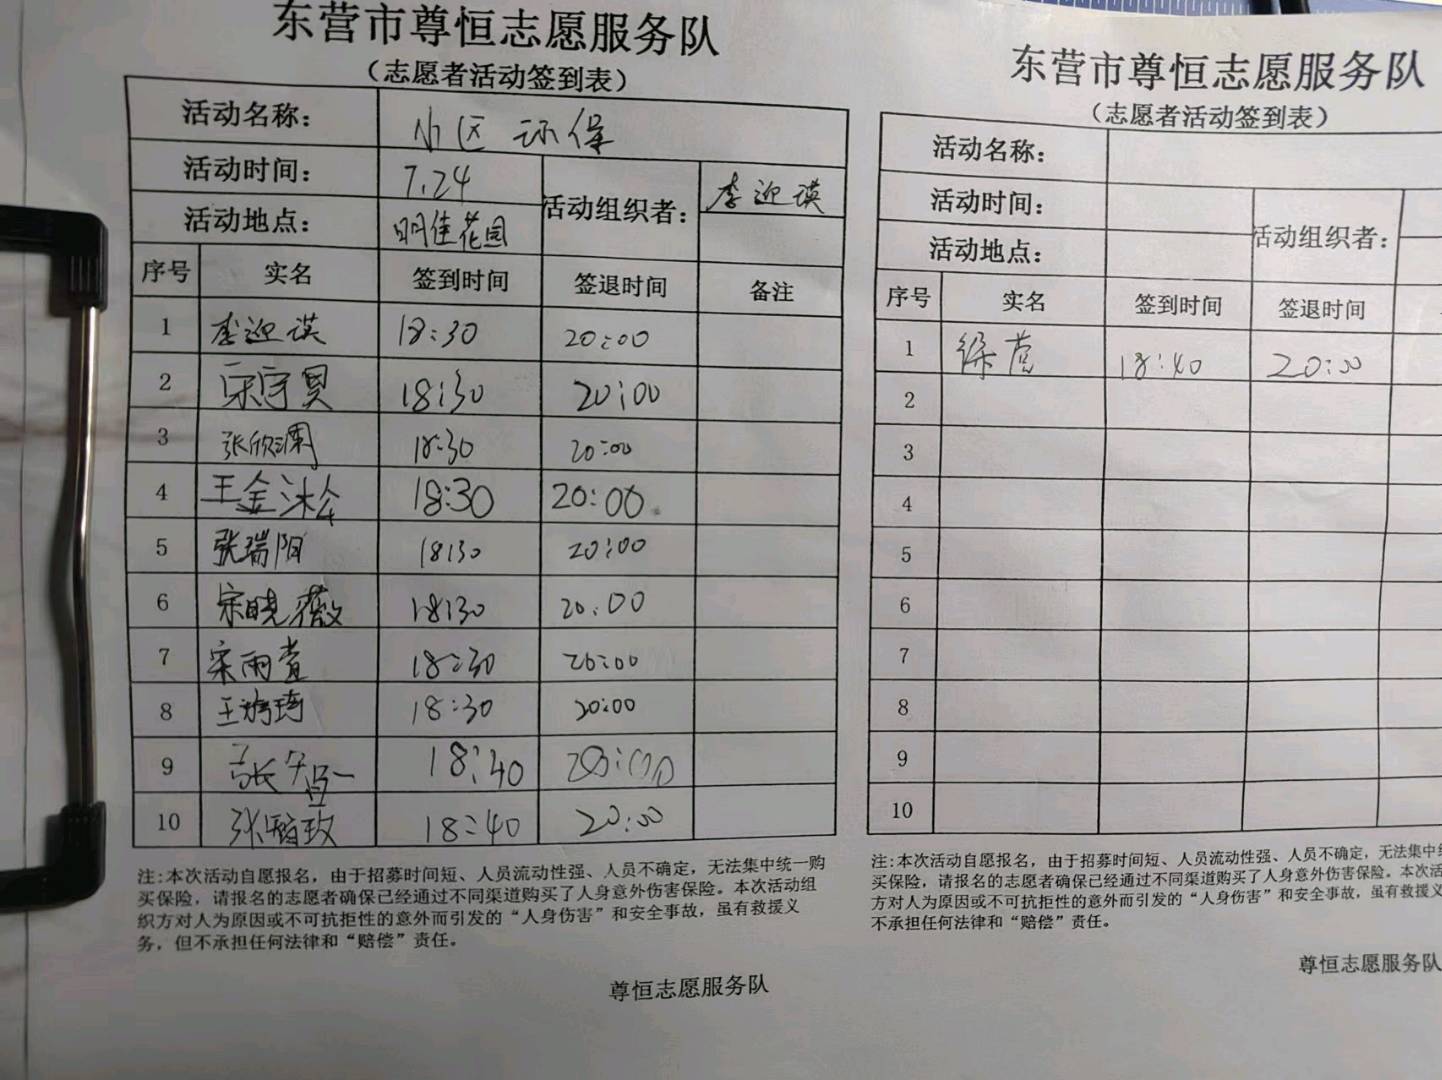 东营市尊恒志愿服务队
（志愿者活动签到表）
活动名称： 小区环保
活动时间： 7.24 活动组织者： 李迎瑛
活动地点： 明佳花园
序号 实名 签到时间 签退时间 备注
1 李迎瑛 18:30 20:00
2 18:30 20:00
3 张欣澜 18:30 20:00
4 王金 18:30 20:00
5 张瑞阳 18:30 20:00
6 宋晓薇 18:30 20:00
7 宋雨萱 18:30 20:00
8 18:30 20:00
9 18:40 20:00
10 18:40 20:00
注：本次活动自愿报名，由于招募时间短、人员流动性强、人员不确定，无法集中统一购
买保险，请报名的志愿者确保已经通过不同渠道购买了人身意外伤害保险。本次活动组
织方对人为原因或不可抗拒性的意外而引发的“人身伤害”和安全事故，虽有救援义
务，但不承担任何法律和“赔偿”责任。
尊恒志愿服务队
东营市尊恒志愿服务队
（志愿者活动签到表）
活动名称：
活动时间： 活动组织者：
活动地点：
序号 实名 签到时间 签退时间
1 徐 18:40 20:00
2
3
4
5
6
7
8
9
10
注：本次活动自愿报名，由于招募时间短、人员流动性强、人员不确定，无法集中
买保险，请报名的志愿者确保已经通过不同渠道购买了人身意外伤害保险。本次活
方对人为原因或不可抗拒性的意外而引发的“人身伤害”和安全事故，虽有救援义
不承担任何法律和“赔偿”责任。
尊恒志愿服务队